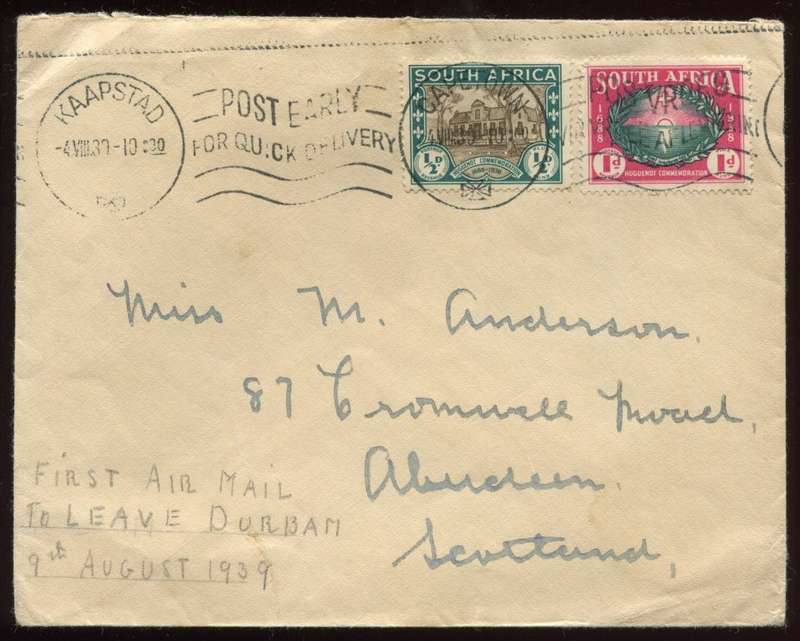 KAAPSTAD
-4.VIII.39-10 30
POST EARLY
FOR QUICK DELIVERY
CAPE TOWN
SOUTH AFRICA
½d ½d
HUGUENOT COMMEMORATION
1688-1938
SOUTH AFRICA
1688 1938
1d 1d
HUGUENOT COMMEMORATION
Miss M. Anderson.
87 Cromwell Road,
Aberdeen.
Scotland,
FIRST AIR MAIL
TO LEAVE DURBAN
9th AUGUST 1939